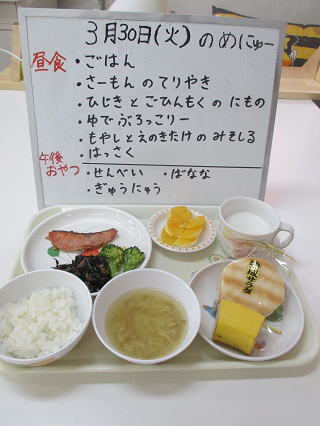 3月30日(火)のめにゅー
昼食
・ごはん
・さーもんのてりやき
・ひじきとごひんもくのにもの
・ゆでぶろっこりー
・もやしとえのきたけのみそしる
・はっさく
午後おやつ
・せんべい ・ばなな
・ぎゅうにゅう
サラダ